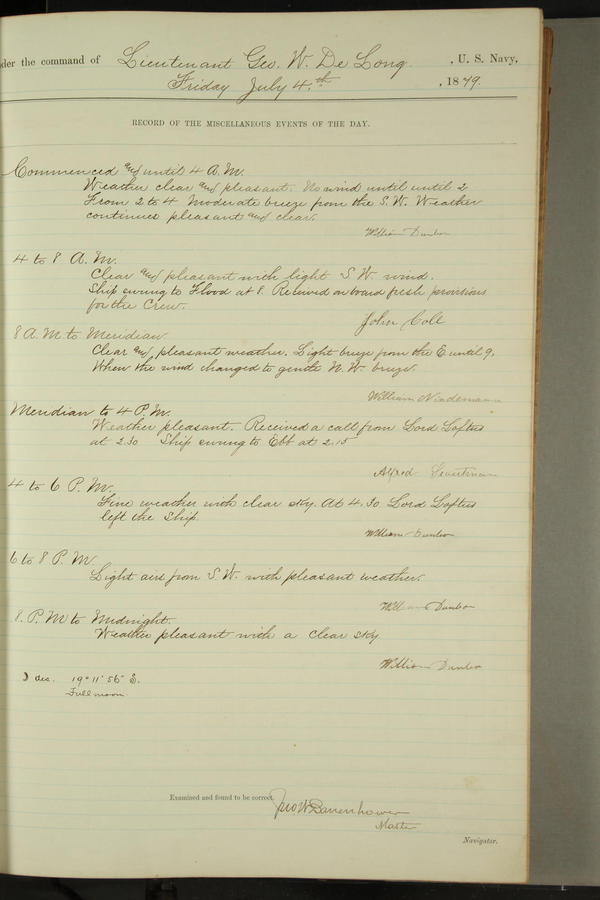 der the command of Lieutenant Geo. W. De Long, U. S. Navy,
Friday July 4th, 1879.
RECORD OF THE MISCELLANEOUS EVENTS OF THE DAY.
Commenced and until 4 A.M.
Weather clear and pleasant. No wind until until 2
From 2 to 4 Moderate breeze from the S.W. Weather
continues pleasant and clear.
William Dunbar
4 to 8 A.M.
Clear and pleasant with light S W wind.
Ship swung to Flood at 8. Received on board fresh provisions
for the Crew.
John Cole
8 A.M to Meridian
Clear and pleasant weather. Light breeze from the E until 9.
When the wind changed to gentle N.W. breeze.
William Nindemann
Meridian to 4 P.M.
Weather pleasant. Received a call from Lord Loftus
at 2.30 Ship swung to Ebb at 2.15
Alfred Sweetman
4 to 6 P.M.
Fine weather with clear sky. At 4.30 Lord Loftus
left the Ship.
William Dunbar
6 to 8 P.M.
Light airs from S.W. with pleasant weather.
William Dunbar
8. P.M to Midnight.
Weather pleasant with a clear sky
William Dunbar
☽ dec. 19° 11' 56" S.
Full moon.
Examined and found to be correct.
Jno W Danenhower
Master
Navigator.